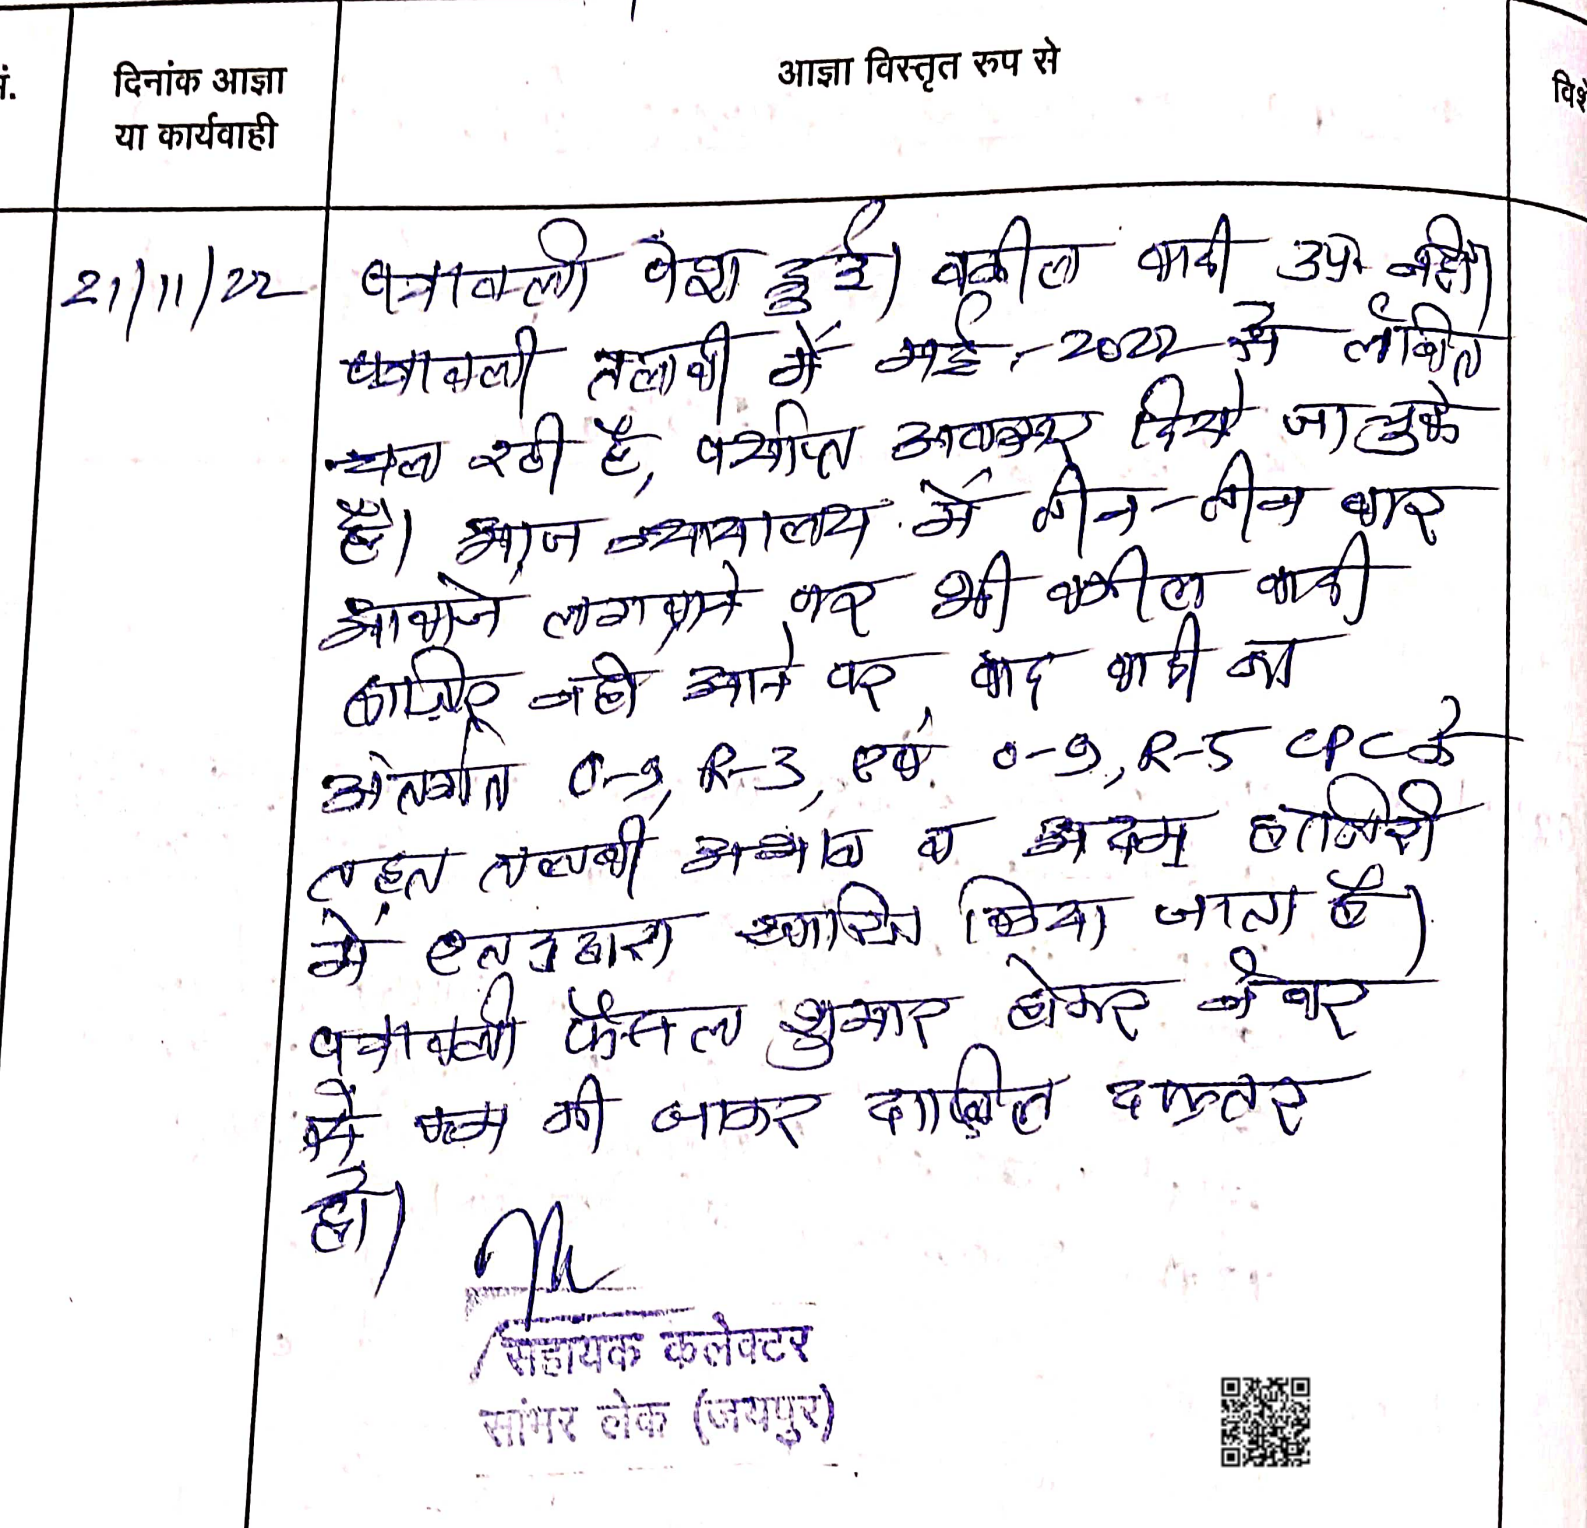 नं.
दिनांक आज्ञा
या कार्यवाही
आज्ञा विस्तृत रुप से
विशे
21/11/22
पत्रावली पेश हुई। वकील वादी उप० नहीं।
पत्रावली तलबी में मई-2022 से लंबित
चल रही है, पर्याप्त अवसर दिये जा चुके
है। आज न्यायालय में तीन-तीन बार
आवाजे लगवाने पर भी वकील वादी
हाजिर नही आने पर, वाद वादी का
अंतर्गत O-9, R-3, एवं O-9, R-5 CPC के
तहत तलबी अभाव व अदम हाजिरी
में एतद्द्वारा खारिज किया जाता है।
पत्रावली फैसल शुमार होकर नंबर
से कम की जाकर दाखिल दफ्तर
हो।
सहायक कलेक्टर
सांभर लेक (जयपुर)